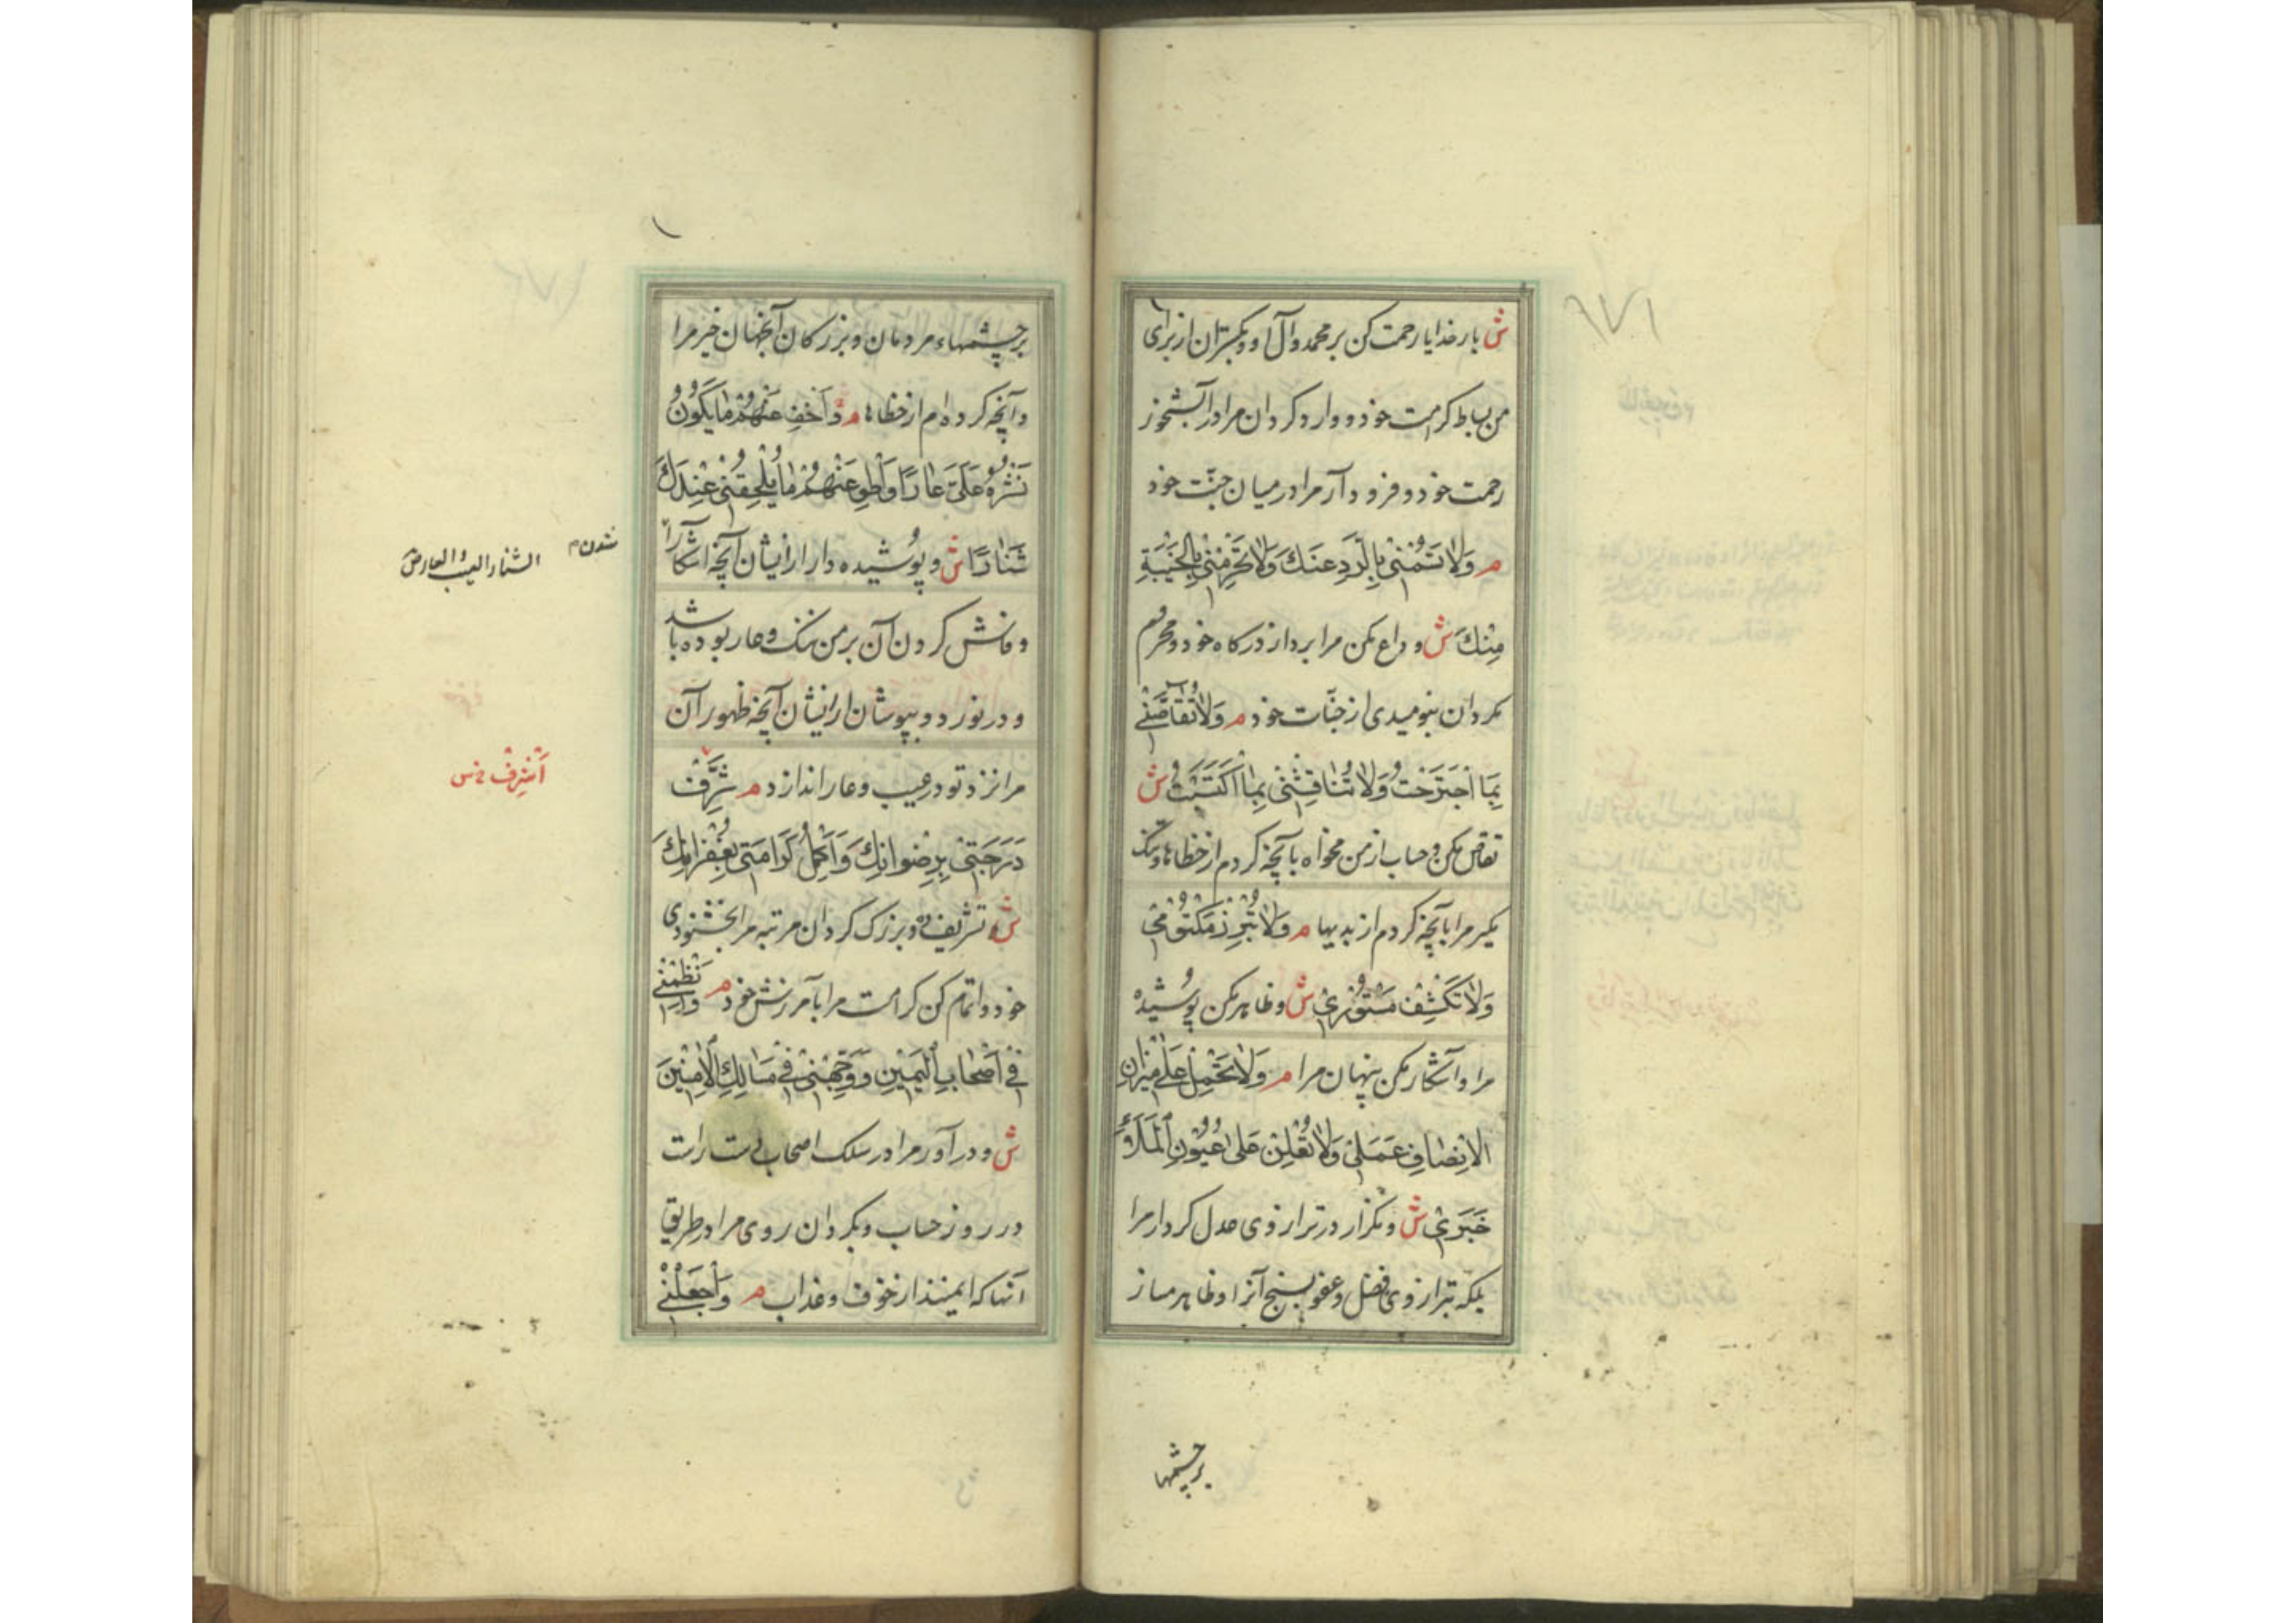 ش بار خدایا رحمت کن بر محمد و آل او و بکستران از برای
من بساط کرامت خود و وارد کردان مرا در آبشخور
رحمت خود و فرود آر مرا در میان جنّت خود
م وَلٰا تَسُمْنِیْ بِالرَّدِ عَنْكَ وَلٰا تَحْرِمْنِیْ بِالْخَیْبَةِ
مِنْكَ ش و داع مکن مرا برد از درکاه خود و محروم
مکردان بنومیدی از جنّات خود م وَلٰا تُقٰاصَّنِیْ
بِمَا اْجْتَرَحْتُ وَلٰا تُنٰاقِشْنِیْ بِمَا اکْتَسَبْتُ ش
تقاص مکن و حساب از من مخواه بآنچه کردم از خطاها و تنک
مکیر مرا بآنچه کردم از بدیها م وَلٰا تُبْرِزْ مَکْتُوْمِیْ
وَلٰا تَکْشِفْ مَسْتُوْرِیْ ش و ظاهر مکن پوُشیده
مرا و آشکار مکن پنهان مرا م وَلٰا تَحْمِلْ عَلٰی مِیْزٰانِ
الْاِنْصٰافِ عَمَلِیْ وَلٰا تُعْلِنْ عَلٰی عُیُوْنِ الْمَلَاءِ
خَبَرِیْ ش و مکزار در ترازوی عدل کردار مرا
بلکه بترازوی فضل و عفو بسنج آنرا و ظاهر مساز
بر چشمها
بر چشمهاء مردمان و بزرکان آنجهان خبر مرا
و آنچه کرده‌ام از خطاها م وَاَخْفِ عَنْهُمْ مٰا یَکُوْنُ
نَشْرُهُ عَلَیَّ عٰارًا وَاْطْوِ عَنْهُمْ مٰا یُلْحِقُنِیْ عِنْدَكَ
شَنٰارًا ش و پوُشیده دار از ایشان آنچه آشکارا
شدن م
الشنار العیب و العار ص
و فاش کردن آن بر من ننک و عار بوده باشد
و در نورد و بپوشان از ایشان آنچه ظهور آن
مرا نزد تو در عیب و عار اندازد م شَرِّفْ
اَشْرِفْ خ س
دَرَجَتِیْ بِرِضْوٰانِكَ وَاَکْمِلْ کَرٰامَتِیْ بِغُفْرٰانِكَ
ش تشریف ده و بزرک کردان مرتبه مرا بخشنودی
خود و اتمام کن کرامت مرا بآمرزش خود م وَانْظِمْنِیْ
فِیْ اَصْحٰابِ الْیَمِیْنِ وَوَجِّهْنِیْ فِیْ مَسٰالِكِ الْاٰمِنِیْنَ
ش و در آور مرا در سلک اصحاب دست راست
در روز حساب و بکردان روی مرا در طریق
آنها که ایمنند از خوف و عذاب م وَاجْعَلْنِیْ